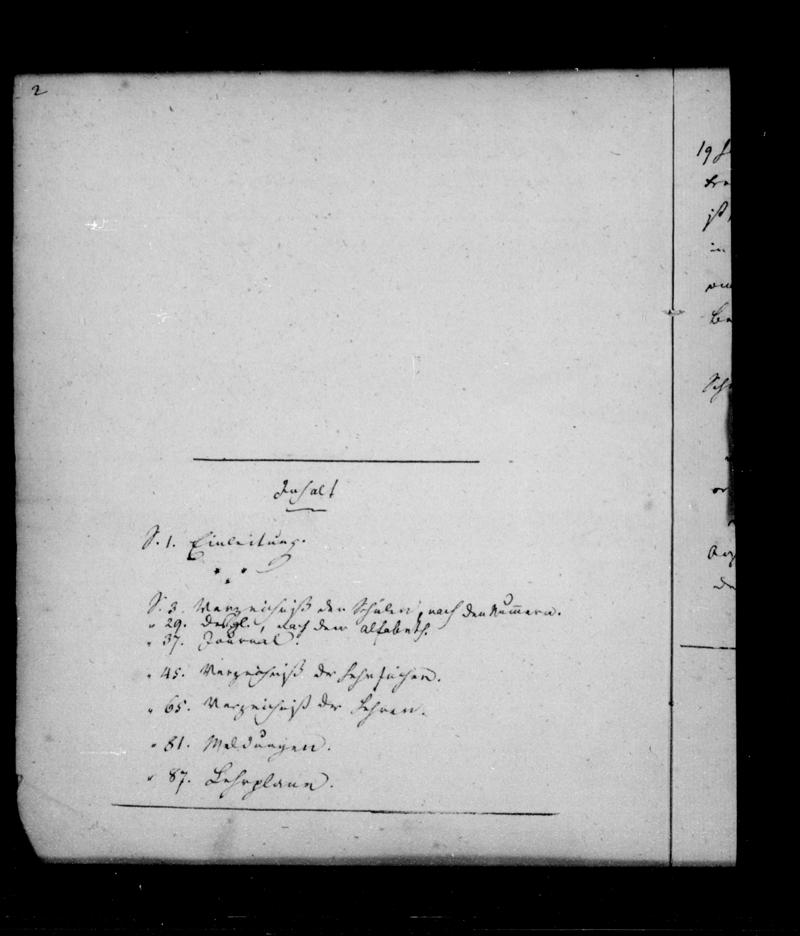 2
Inhalt
S. 1. Einleitung.
S. 3. Verzeichniß der Schüler, nach den Nummern.
" 29. desgl., nach dem Alfabeth.
" 37. Journal.
" 45. Verzeichniß der Lehrfächer.
" 65. Verzeichniß der Lehrer.
" 81. Meldungen.
" 87. Lehrplane.
19
in